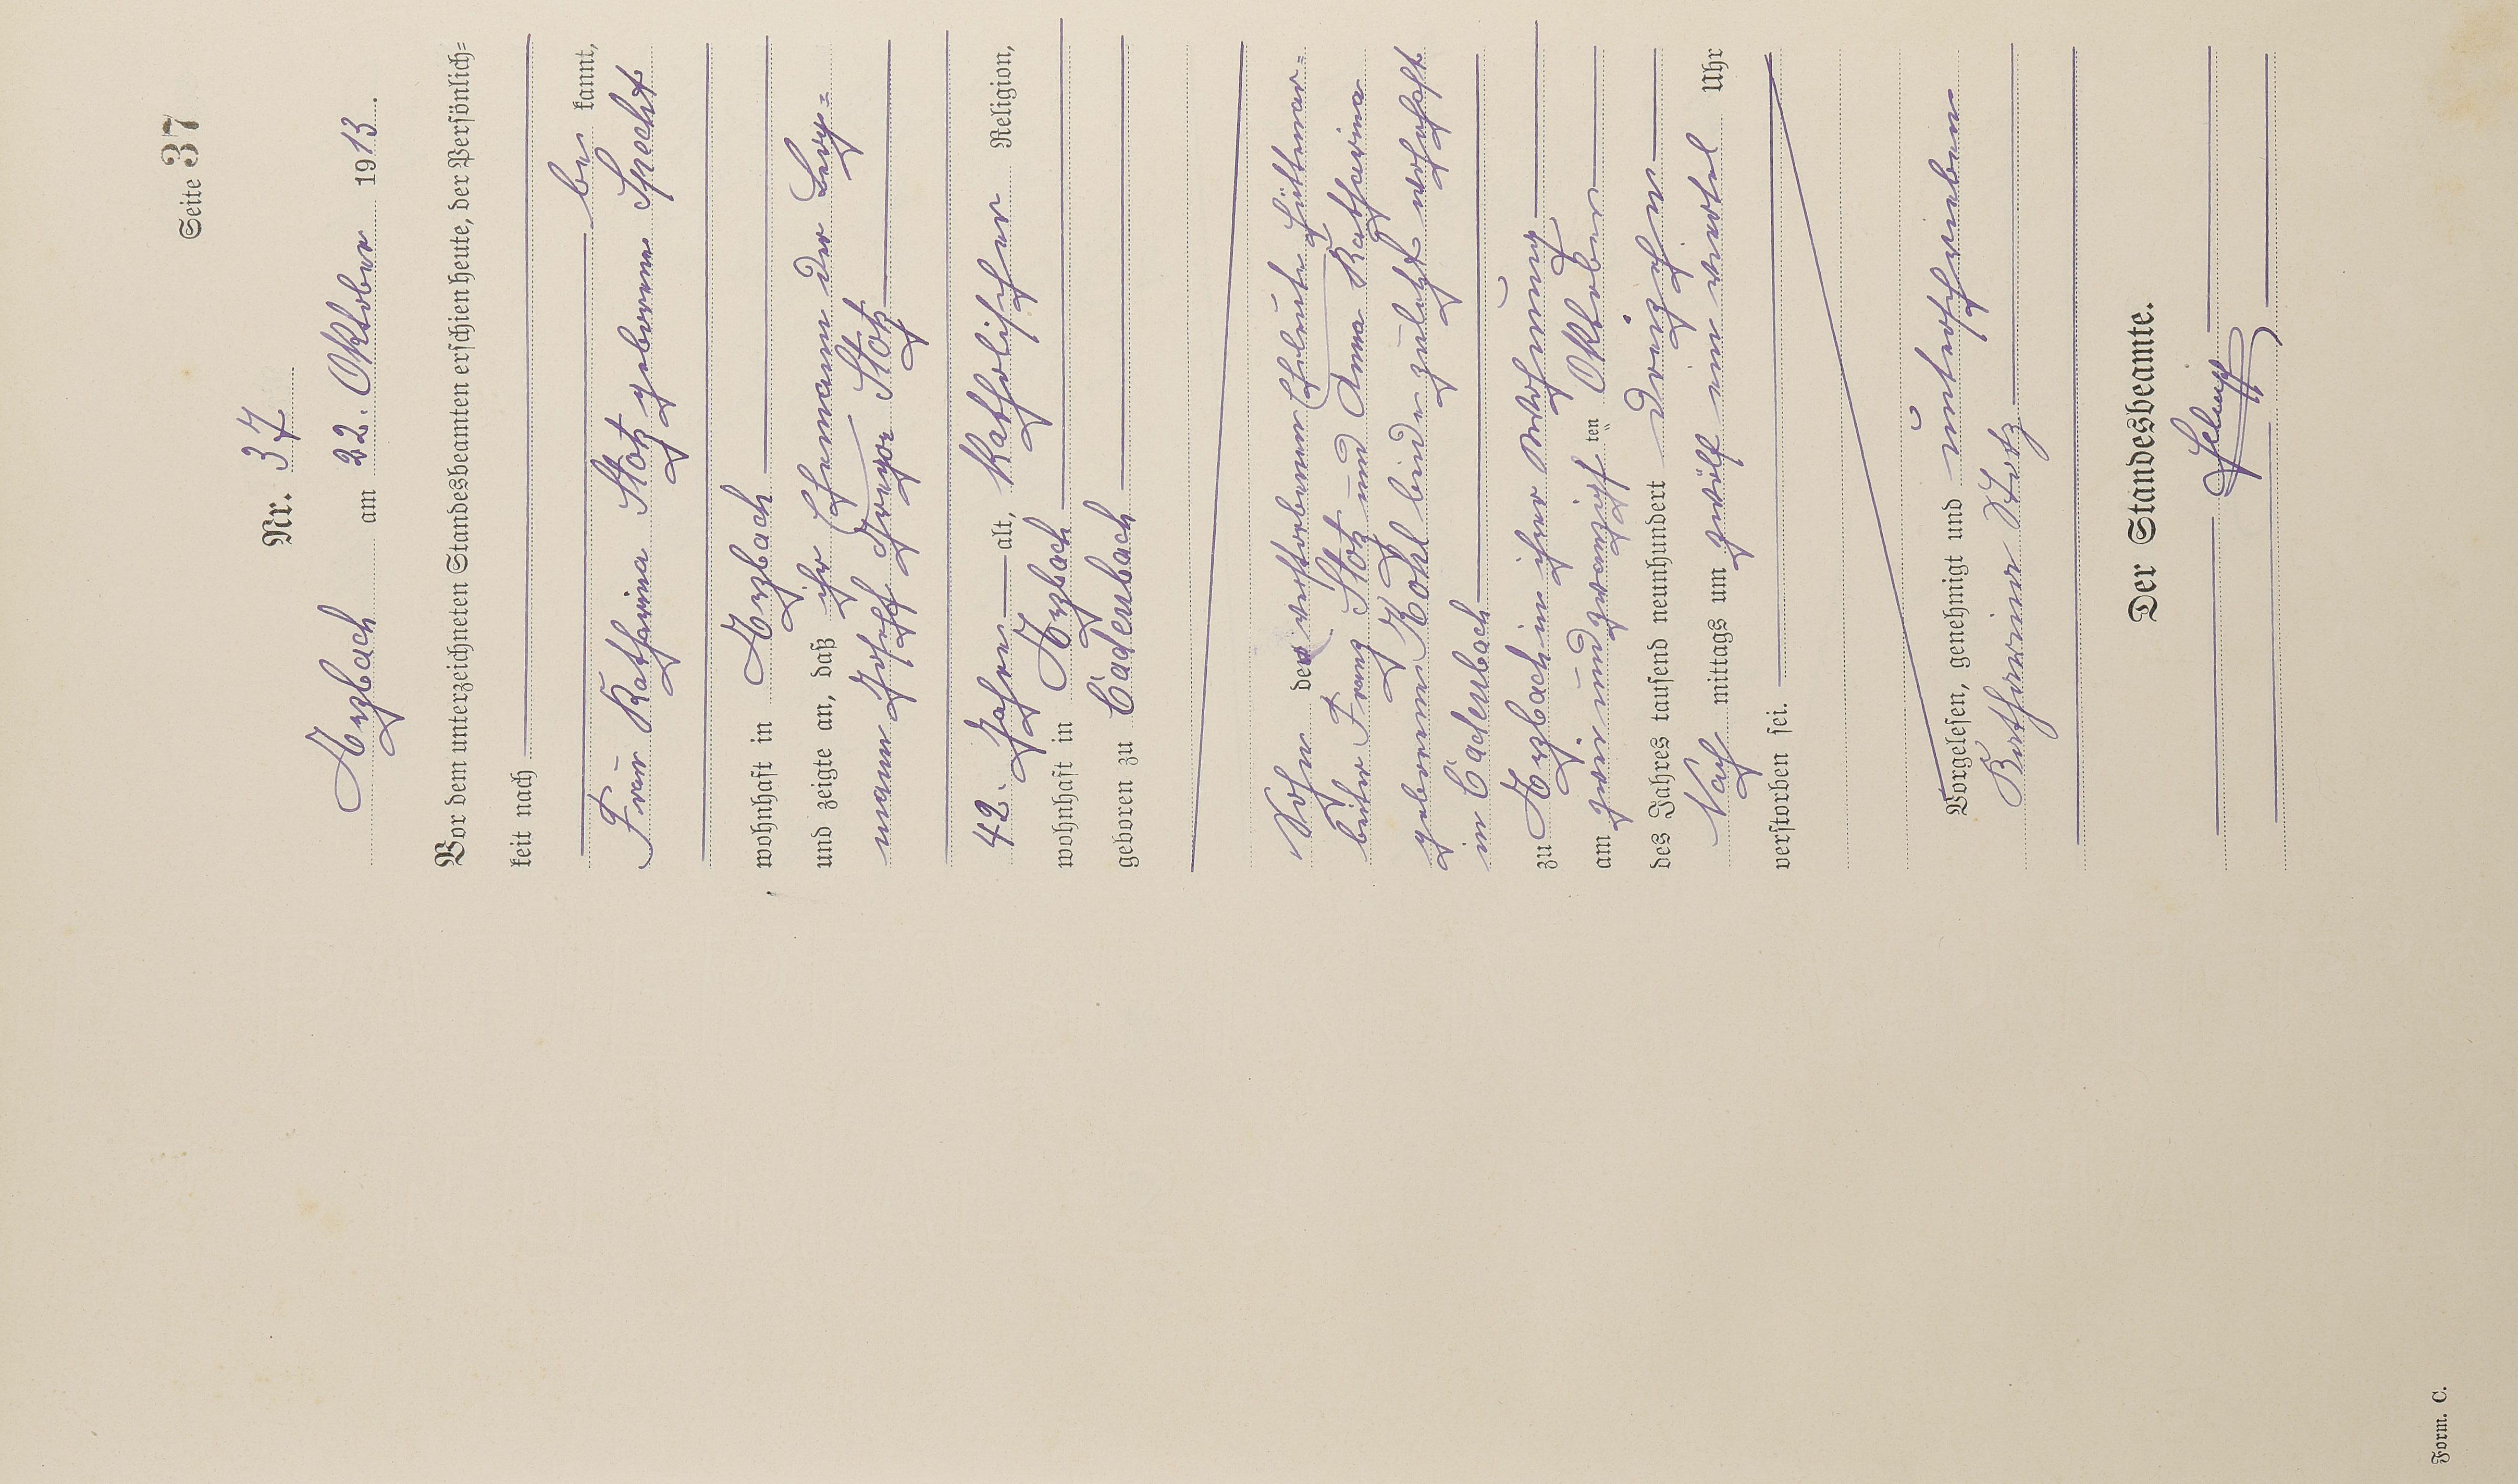 Seite 37
Nr. 37
Arzbach am 22. Oktober 1913.
Vor dem unterzeichneten Standesbeamten erschien heute, der Persönlich=
keit nach
be kannt,
Frau Katharina Stotz geborene Specht
wohnhaft in Arzbach
und zeigte an, daß ihr Ehemann der Berg=
mann Joseph Gregor Stotz
42. Jahre alt, katholischer Religion,
wohnhaft in Arzbach
geboren zu Cadenbach
Sohn der verstorbenen Eheleute Hüttenar=
beiter Franz Stotz und Anna Katharina
geborene Kohl beide zuletzt wohnhaft
in Cadenbach
zu Arzbach in ihrer Wohnung
am zweiundzwanzigsten Oktober
des Jahres tausend neunhundert dreizehn
Nach mittags um zwölf ein viertel Uhr
verstorben sei.
Vorgelesen, genehmigt und unterschrieben
Katharina Stotz
Der Standesbeamte.
Form. C.